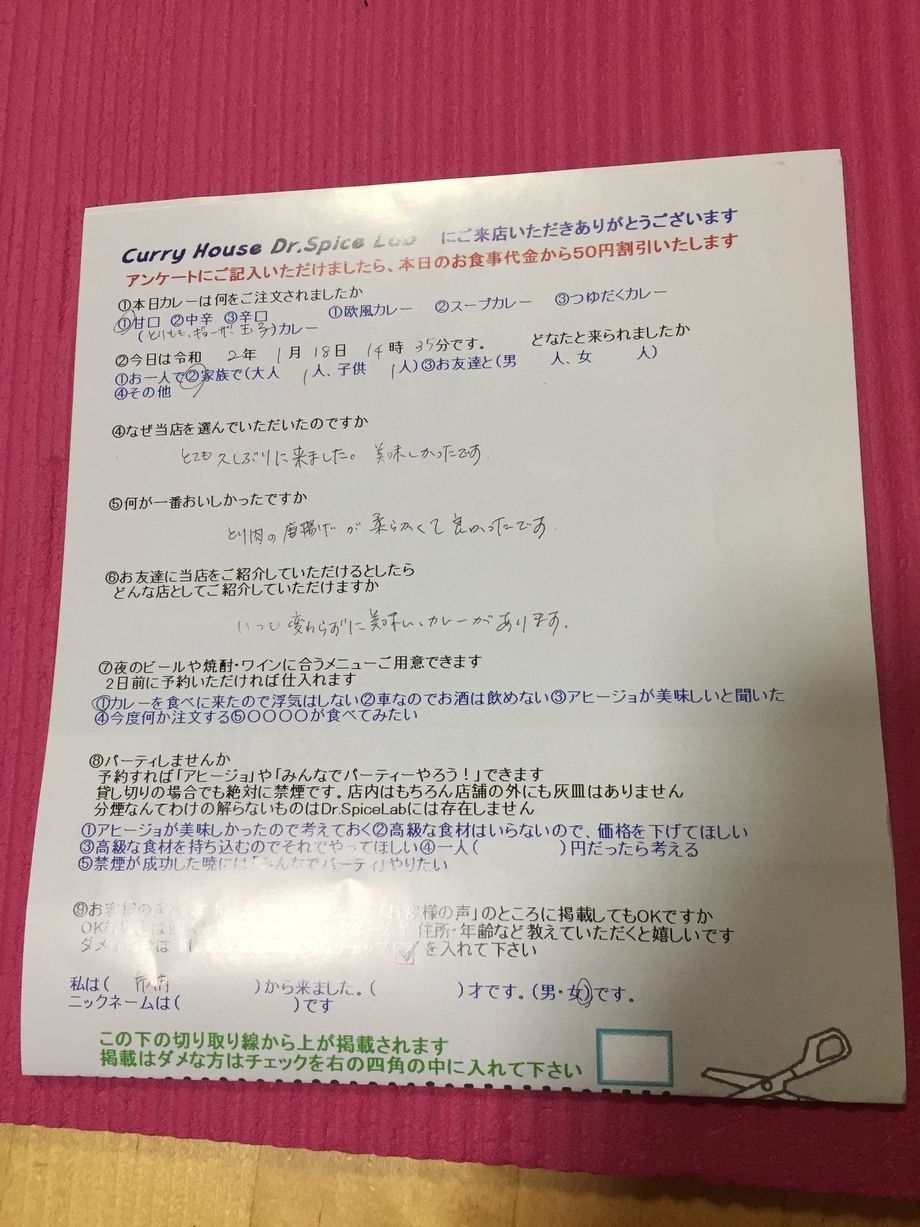 Curry House Dr.Spice Lab にご来店いただきありがとうございます
アンケートにご記入いただけましたら、本日のお食事代金から50円割引いたします
①本日カレーは何をご注文されましたか
①甘口 ②中辛 ③辛口 ①欧風カレー ②スープカレー ③つゆだくカレー
(とりもも、ギョーザ、玉子)カレー
②今日は令和 2年 1月 18日 14時 35分です。 どなたと来られましたか
①お一人で②家族で(大人 1人、子供 1人)③お友達と(男 人、女 人)
④その他
④なぜ当店を選んでいただいたのですか
とても久しぶりに来ました。美味しかったです.
⑤何が一番おいしかったですか
とり肉の唐揚げが柔らかくて良かったです.
⑥お友達に当店をご紹介していただけるとしたら
どんな店としてご紹介していただけますか
いつも変わらずに美味しいカレーがあります.
⑦夜のビールや焼酎・ワインに合うメニューご用意できます
2日前に予約いただければ仕入れます
①カレーを食べに来たので浮気はしない②車なのでお酒は飲めない③アヒージョが美味しいと聞いた
④今度何か注文する⑤〇〇〇〇が食べてみたい
⑧パーティしませんか
予約すれば「アヒージョ」や「みんなでパーティーやろう!」できます
貸し切りの場合でも絶対に禁煙です。店内はもちろん店舗の外にも灰皿はありません
分煙なんてわけの解らないものはDr.SpiceLabには存在しません
①アヒージョが美味しかったので考えておく②高級な食材はいらないので、価格を下げてほしい
③高級な食材を持ち込むのでそれでやってほしい④一人( )円だったら考える
⑤禁煙が成功した暁には「みんなでパーティ」やりたい
⑨お客様の声 「お客様の声」のところに掲載してもOKですか
OK 住所・年齢など教えていただくと嬉しいです
ダメ を入れて下さい
私は( )から来ました。( )才です。(男・女)です。
ニックネームは( )です
この下の切り取り線から上が掲載されます
掲載はダメな方はチェックを右の四角の中に入れて下さい